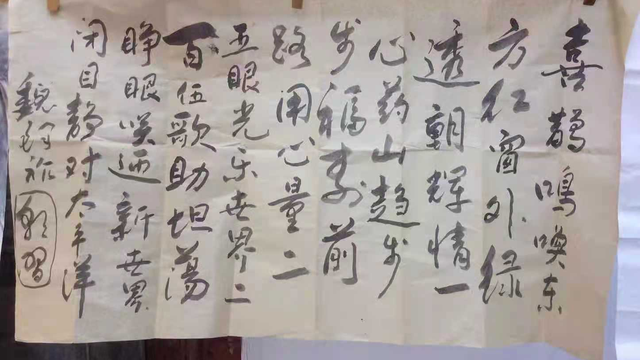 喜鹊鸣唤东
方红窗外绿
透朝辉情一
心药山趋步
步福寿前
路用心量二
五眼光乐世界二
百伍歌助坦荡
睁眼笑迎新世界
闭目静对太平洋
魏